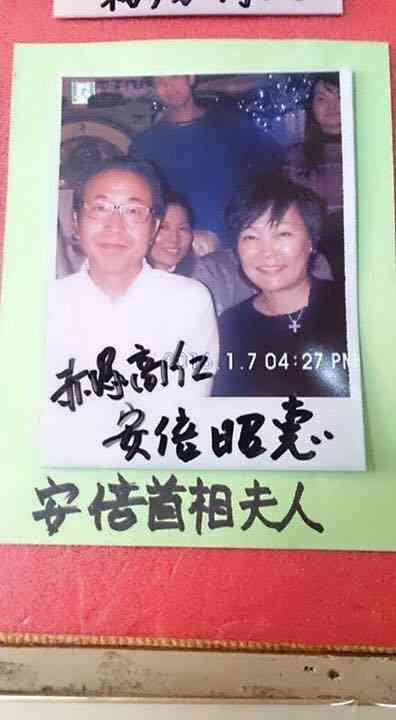 .1.7 04:27 PM
赤塚高仁
安倍昭恵
安倍首相夫人